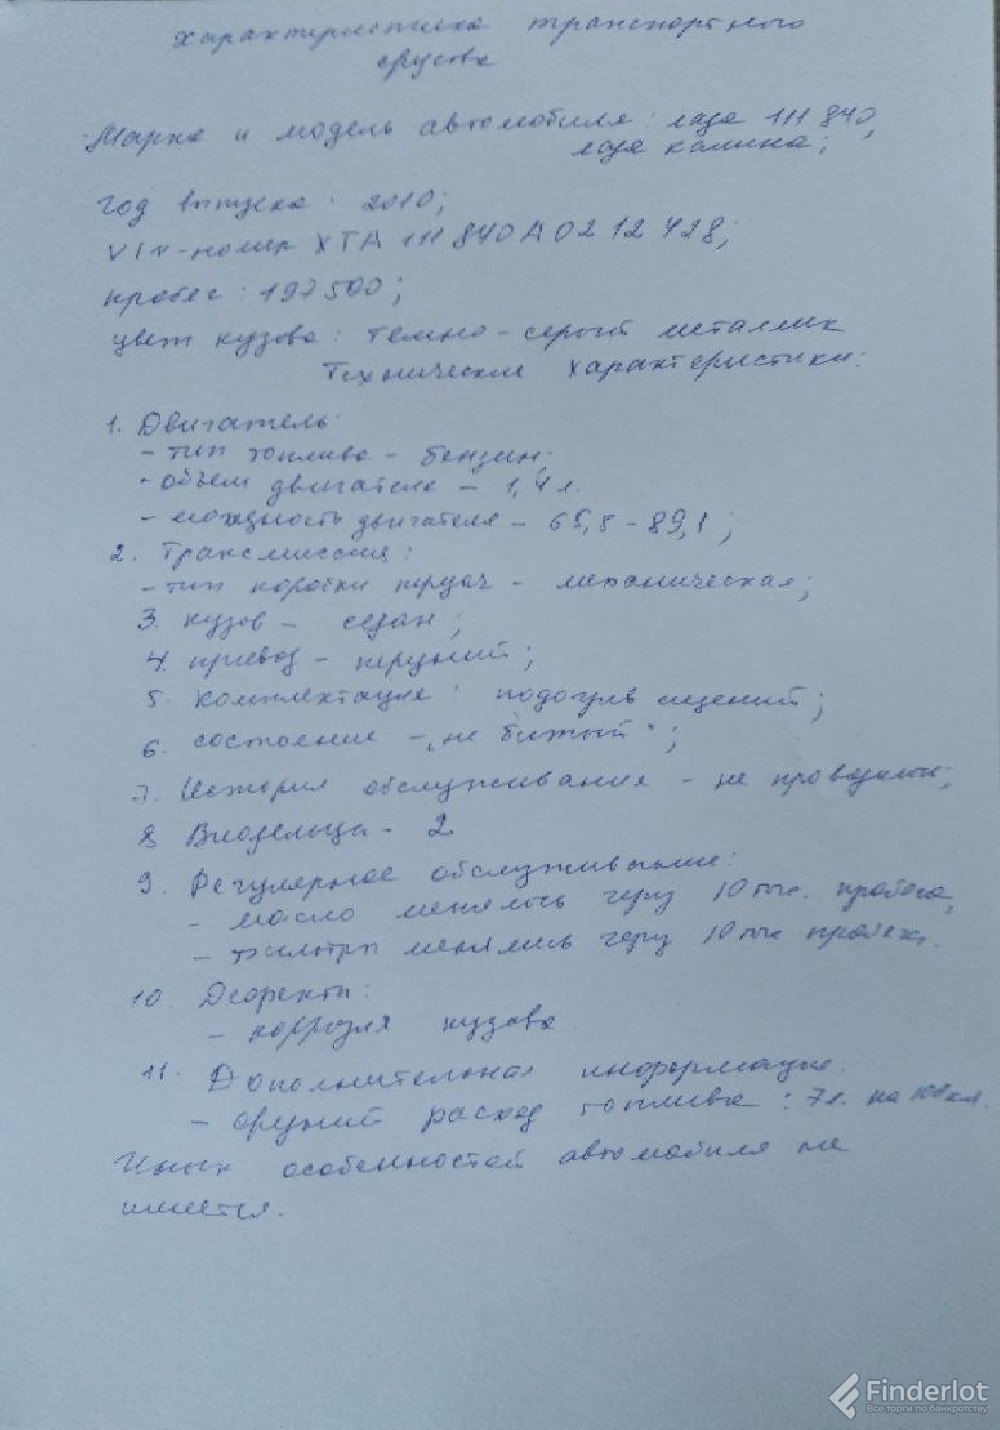 Характеристика транспортного
средства
Марка и модель автомобиля: лада 111840,
лада калина;
год выпуска: 2010;
VIN-номер XTA 111 840 A 02 12 428;
пробег: 197500;
цвет кузова: темно-серый металлик
Технические характеристики:
1. Двигатель:
- тип топлива - бензин;
- объем двигателя - 1,4 л.
- мощность двигателя - 65,5-89,1;
2. Трансмиссия:
- тип коробки передач - механическая;
3. кузов - седан;
4. привод - передний;
5. комплектация: подогрев сидений;
6. состояние - „не битый";
7. История обслуживания - не проводилось;
8 Владельцы - 2
9. Регулярное обслуживание:
- масло менялось через 10 тыс. пробега,
- фильтры менялись через 10 тыс пробега.
10. Дефекты:
- коррозия кузова
11. Дополнительная информация.
- средний расход топлива: 7л. на 100 км.
Иных особенностей автомобиля не
имеется.
Finderlot
Все торги по банкротству